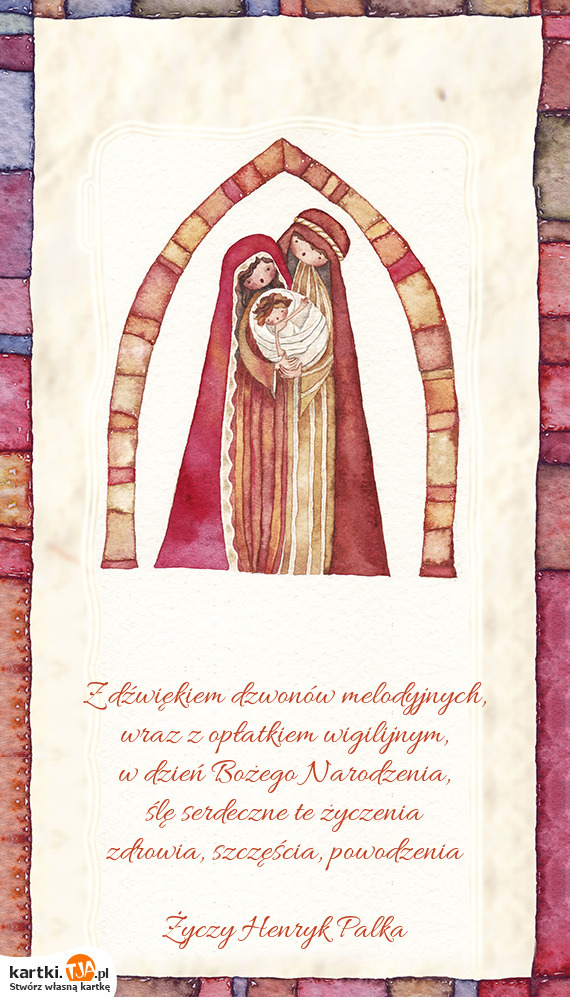 Z dźwiękiem dzwonów melodyjnych,
wraz z opłatkiem wigilijnym,
w dzień Bożego Narodzenia,
ślę serdeczne te życzenia
zdrowia, szczęścia, powodzenia
Życzy Henryk Palka
kartki.TJA.pl
Stwórz własną kartkę